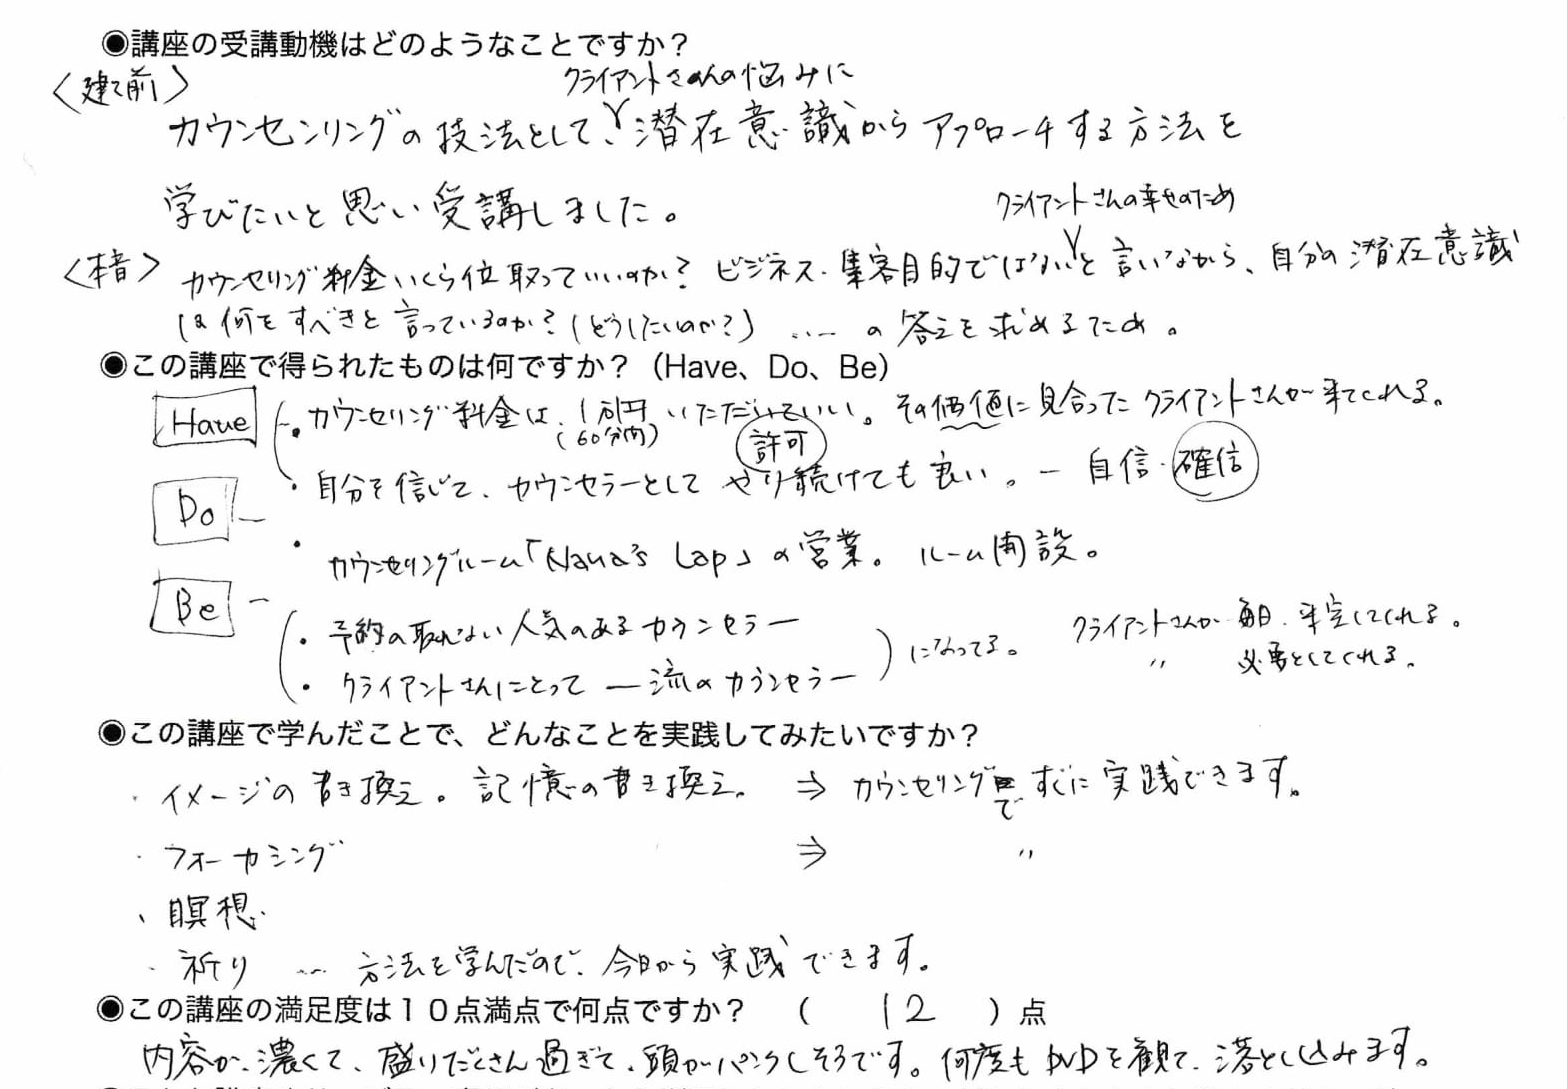 ◉講座の受講動機はどのようなことですか？
〈建て前〉
クライアントさんの悩みに
カウンセンリングの技法として、潜在意識からアプローチする方法を
学びたいと思い受講しました。
クライアントさんの幸せのため
〈本音〉 カウンセリング料金いくら位取っていいのか？ ビジネス・集客目的ではないと言いながら、自分の潜在意識
は何をすべきと言っているのか？（どうしたいのか？） …… の答えを求めるため。
◉この講座で得られたものは何ですか？（Have、Do、Be）
Have ・カウンセリング料金は、1万円いただいていい。その価値に見合ったクライアントさんが来てくれる。
（60分内） 許可
・自分を信じて、カウンセラーとしてやり続けても良い。ー 自信・確信
Do
・カウンセリングルーム「Nana's Lap」の営業。ルーム開設。
Be
・予約の取れない人気のあるカウンセラー
クライアントさんが 毎日、来室してくれる。
になってる。
・クライアントさんにとって 一流のカウンセラー
〃 必要としてくれる。
◉この講座で学んだことで、どんなことを実践してみたいですか？
・イメージの書き換え。記憶の書き換え。 ⇒ カウンセリングですぐに実践できます。
・フォーカシング ⇒ 〃
・瞑想
・祈り …… 方法を学んだので、今日から実践できます。
◉この講座の満足度は１０点満点で何点ですか？ （ 12 ）点
内容が、濃くて、盛りだくさん過ぎて、頭がパンクしそうです。何度もDVDを観て、落とし込みます。